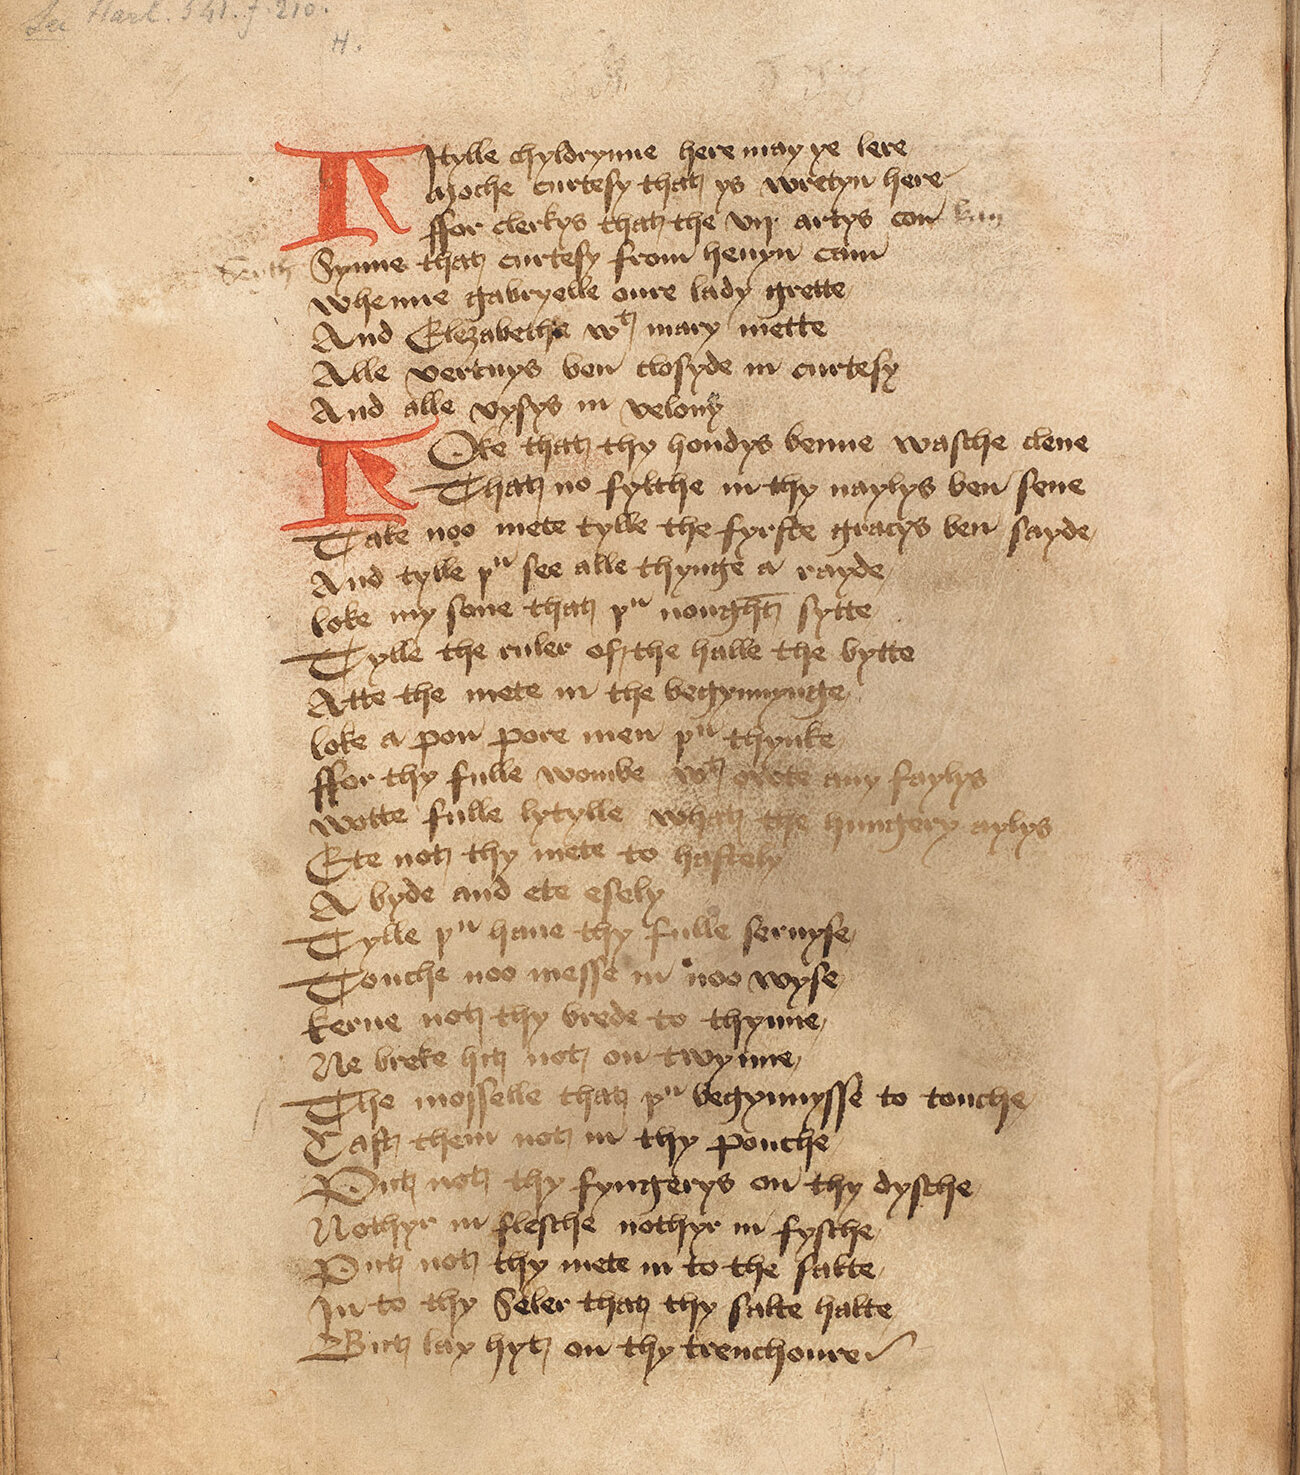 See Harl. 541. f. 210.
H.
Lytylle chyldrynne here may ye lere
Moche curtesy that ys wretyn here
ffor clerkys that the vij artys con kun
Synne that curtesy from hevyn cam
Whenne gabryelle oure lady grette
And Elezabethe wt mary mette
Alle vertuys ben closyde in curtesy
And alle vysys in velony
Loke that thy hondys benne wasche clene
That no fylthe in thy naylys ben sene
Take noo mete tylle the fyrste gracys ben sayde
And tylle þu see alle thynge a rayde
loke my sone that þu nought sytte
Tylle the ruler of the halle the bytte
Atte the mete in the begynnynge
loke a pon pore men þu thynke
ffor thy fulle wombe wt owte any faylys
Wotte fulle lytylle what the hungery aylys
Ete not thy mete to hastely
A byde and ete esely
Tylle þu have thy fulle servyse
Touche noo messe in noo wyse
Kerve not thy brede to thynne
Ne breke hit not on twynne
The mosselle that þu begynnysse to touche
Cast them not in thy pouche
Put not thy fyngerys on thy dysche
Nothyr in flesche nothyr in fysche
Put not thy mete in to the salte
In to thy Seler that thy salte halte
But lay hyt on thy trenchoure